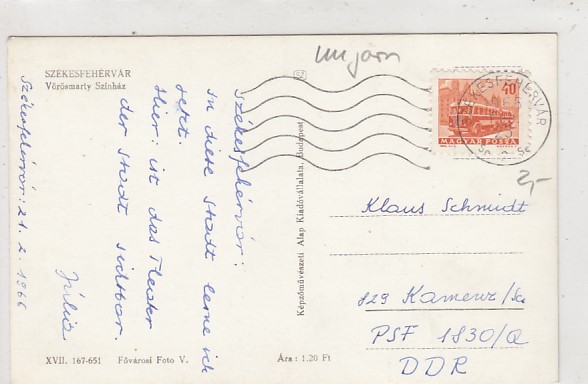 Ungarn
SZÉKESFEHÉRVÁR
Vörösmarty Színház
Székesfehérvár:
In diese Stadt lerne ich
jetzt.
Hier: ist das Theater
der Stadt sichtbar.
Júlia
Székesfehérvár: 21. 2. 1966
Képzőművészeti Alap Kiadóvállalata, Budapest
40f
MAGYAR POSTA
SZÉKESFEHÉRVÁR
2,-
Klaus Schmidt
829 Kamenz/Sa
PSF 1830/Q
DDR
XVII. 167-651 Fővárosi Foto V. Ára: 1.20 Ft